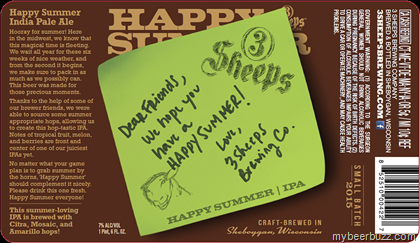 Happy Summer
India Pale Ale
Hooray for summer! Here
in the midwest, we know that
this magical time is fleeting.
We wait all year for these six
weeks of nice weather, and
from the second it begins,
we make sure to pack in as
much as we possibly can.
This beer was made for
those precious moments.
Thanks to the help of some of
our brewer friends, we were
able to source some summer
appropriate hops, allowing us
to create this hop-tastic IPA.
Notes of tropical fruit, melon,
and berries are front and
center of one of our juiciest
IPAs yet.
No matter what your game
plan is to grab summer by
the horns, 'Happy Summer'
should complement it nicely.
Please drink this one fresh.
Happy Summer everyone!
This summer-loving
IPA is brewed with
Citra, Mosaic, and
Amarillo hops!
HAPPY
SUMMER
3
Sheeps
Dear Friends,
We hope you
have a
HAPPY SUMMER!
Love,
3 Sheeps
Brewing Co.
HAPPY SUMMER | IPA
7% ALC/VOL
1 Pint, 6 Fl. Oz.
CRAFT-BREWED IN
Sheboygan, Wisconsin
3 SHEEPS BREWING COMPANY
BREWED & BOTTLED IN SHEBOYGAN, WISCONSIN
3SHEEPSBREWING.COM
GOVERNMENT WARNING: (1) ACCORDING TO THE SURGEON
GENERAL, WOMEN SHOULD NOT DRINK ALCOHOLIC BEVERAGES
DURING PREGNANCY BECAUSE OF THE RISK OF BIRTH DEFECTS.
(2) CONSUMPTION OF ALCOHOLIC BEVERAGES IMPAIRS YOUR ABILITY
TO DRIVE A CAR OR OPERATE MACHINERY, AND MAY CAUSE HEALTH
PROBLEMS.
SMALL BATCH
2015
8 52510 00422 7
mybeerbuzz.com